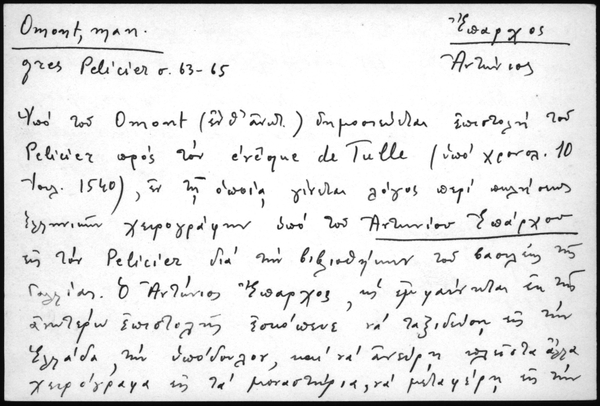 Omont, man.
Ἔπαρχος
grecs Pelicier σ. 63-65
Ἀντώνιος
Ὑπό τοῦ Omont (ἔνθ' ἀνωτ.) δημοσιεύεται ἐπιστολή τοῦ
Pelicier πρός τόν évêque de Tulle (ὑπό χρονολ. 10
Ἰουλ. 1540), ἐν τῇ ὁποίᾳ γίνεται λόγος περί πωλήσεως
ἑλληνικῶν χειρογράφων ὑπό τοῦ Ἀντωνίου Ἐπάρχου
εἰς τόν Pelicier διά τήν βιβλιοθήκην τοῦ βασιλέως τῆς
Γαλλίας. Ὁ Ἀντώνιος Ἔπαρχος, ὡς ἐμφαίνεται ἐκ τῆς
ἀνωτέρω ἐπιστολῆς ἐσκόπευε νά ταξιδεύσῃ εἰς τήν
Ἑλλάδα, τήν ὑπόδουλον, καί νά ἀνεύρῃ πλεῖστα ἄλλα
χειρόγραφα εἰς τά μοναστήρια, νά μεταφέρῃ εἰς τήν